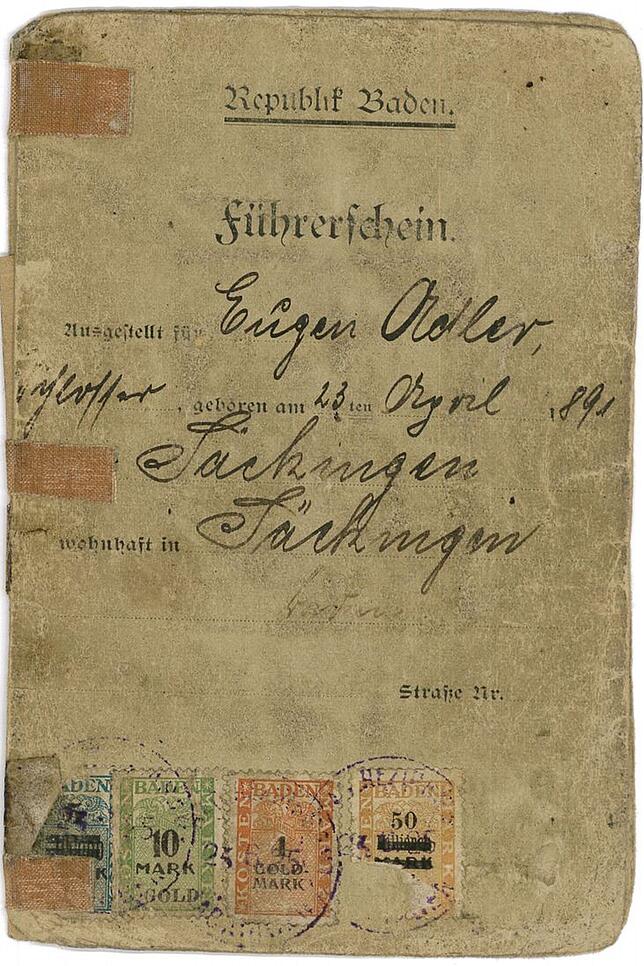 Republik Baden.
Führerschein.
Ausgestellt für Eugen Adler,
chlosser, geboren am 23ten April 1891
Säckingen
wohnhaft in Säckingen
Baden
Straße Nr.
BADEN BADEN BADEN
10 MARK GOLD
4 GOLD-MARK
50
MARK
KOSTEN
BEZI